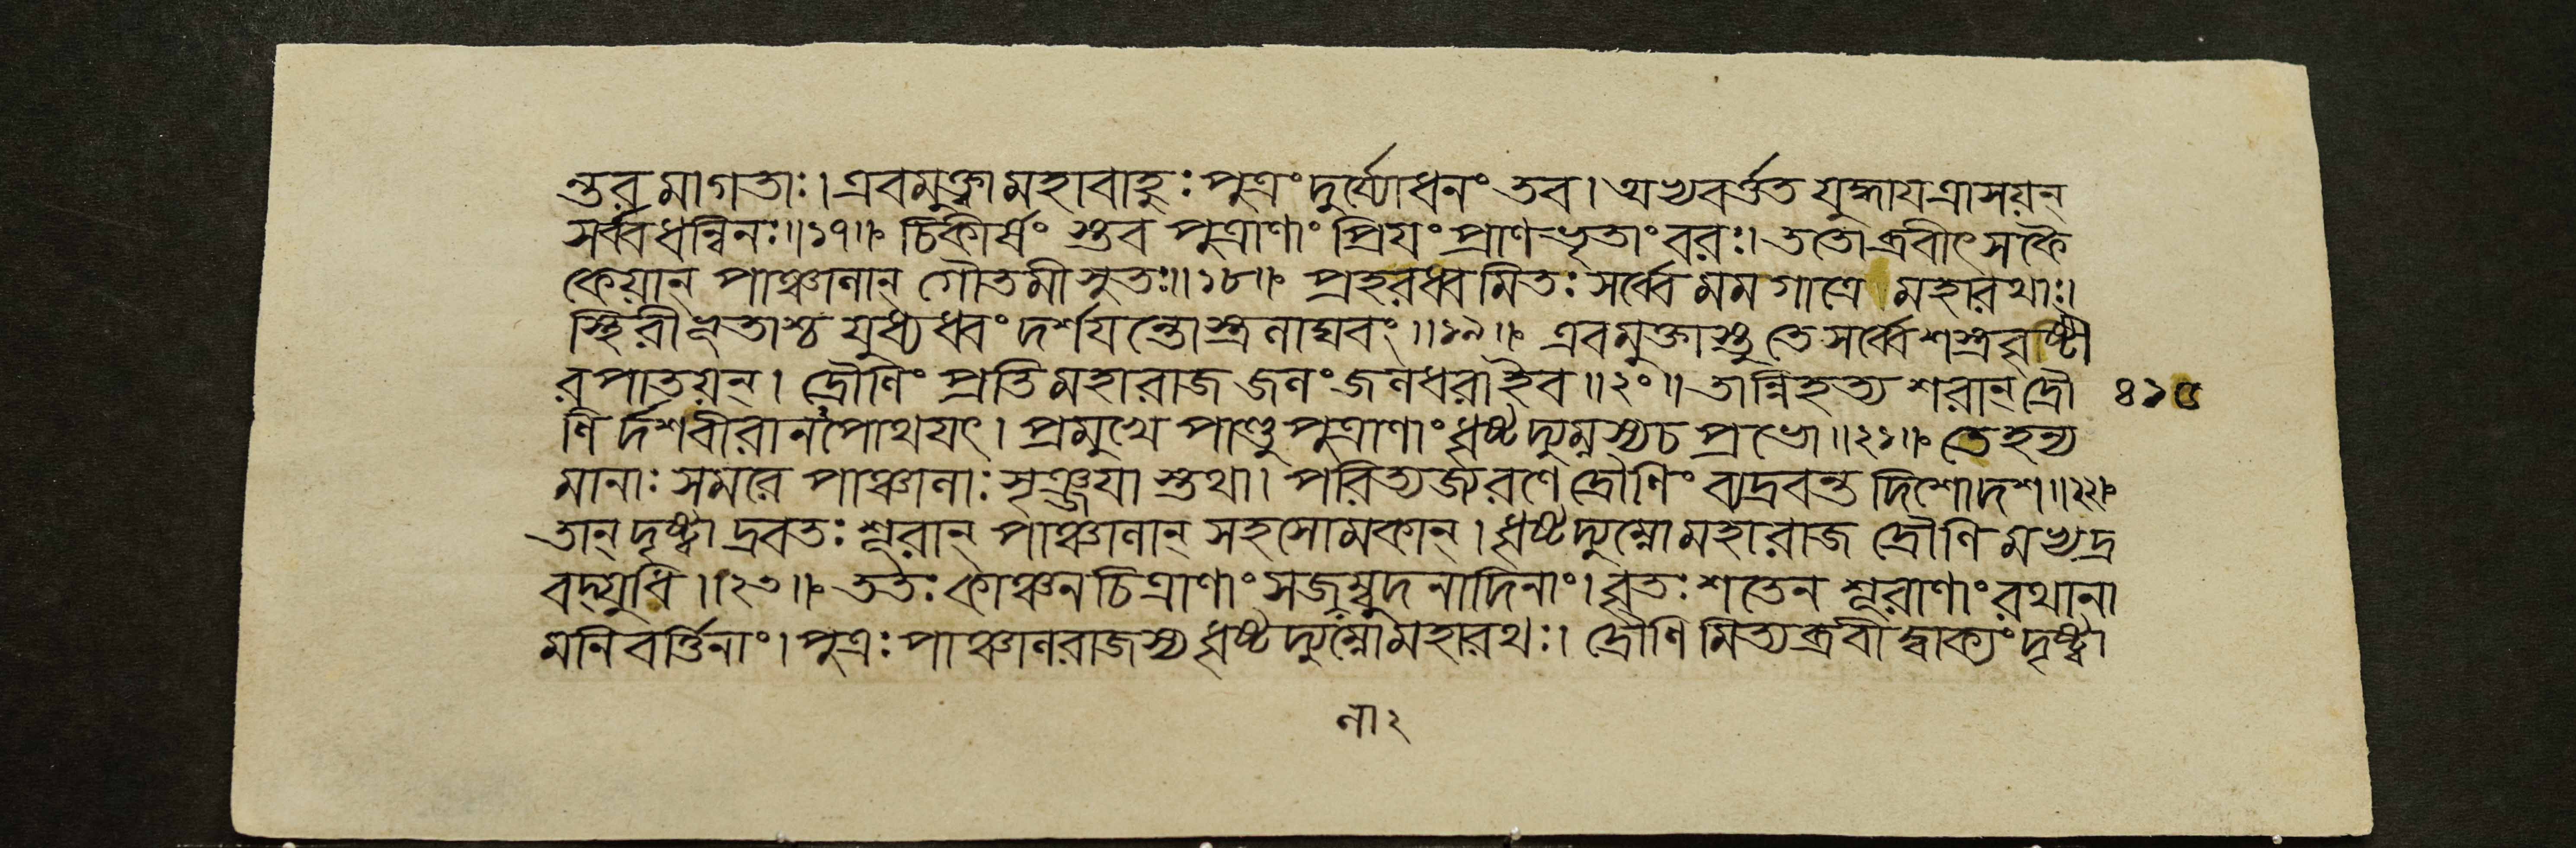 ন্তর মাগতাঃ। এবমুক্ত্বা মহাবাহুঃ পুত্রং দুর্য্যোধনং তব। অভ্যবর্ত্তত যুদ্ধায় ত্রাসয়ন্
সর্ব্বধন্বিনঃ॥১৭॥ চিকীর্ষু স্তব পুত্রাণাং প্রিয়ং প্রাণভৃতাং বরঃ। ততোব্রবীৎ সকৈ
কেয়ান্ পাঞ্চালান্ গৌতমী সুতঃ॥১৮॥ প্রহরধ্ব মিতঃ সর্ব্বে মম গাত্রে মহারথাঃ।
স্থিরীভূতাশ্চ যুধ্যধ্বং দর্শয়ন্তোস্ত্রলাঘবং॥১৯॥ এবমুক্তাস্তু তে সর্ব্বে শস্ত্রবৃষ্টী
রপাতয়ন্। দ্রৌণিং প্রতি মহারাজ জলং জলধরাইব॥২০॥ তান্নিহত্য শরান্ দ্রৌ
ণি র্দশবীরানপোথয়ৎ। প্রমুখে পাণ্ডু পুত্রাণাং ধৃষ্টদ্যুম্নস্যচ প্রভো॥২১॥ তে হন্য
মানাঃ সমরে পাঞ্চালাঃ সৃঞ্জয়া স্তথা। পরিত্যজ্য রণে দ্রৌণিং ব্যদ্রবন্ত দিশোদশ॥২২॥
তান্ দৃষ্ট্বা দ্রবতঃ শূরান্ পাঞ্চালান্ সহসোমকান্। ধৃষ্টদ্যুম্নো মহারাজ দ্রৌণি মভ্যদ্র
বদ্যুধি॥২৩॥ ততঃ কাঞ্চনচিত্রাণাং সজলাম্বুদ নাদিনাং। বৃতঃ শতেন শূরাণাং রথানা
মনিবর্ত্তিনাং। পুত্রঃ পাঞ্চালরাজস্য ধৃষ্টদ্যুম্নো মহারথঃ। দ্রৌণি মিত্যব্রবী দ্বাক্যং দৃষ্ট্বা
৪১৫
না২